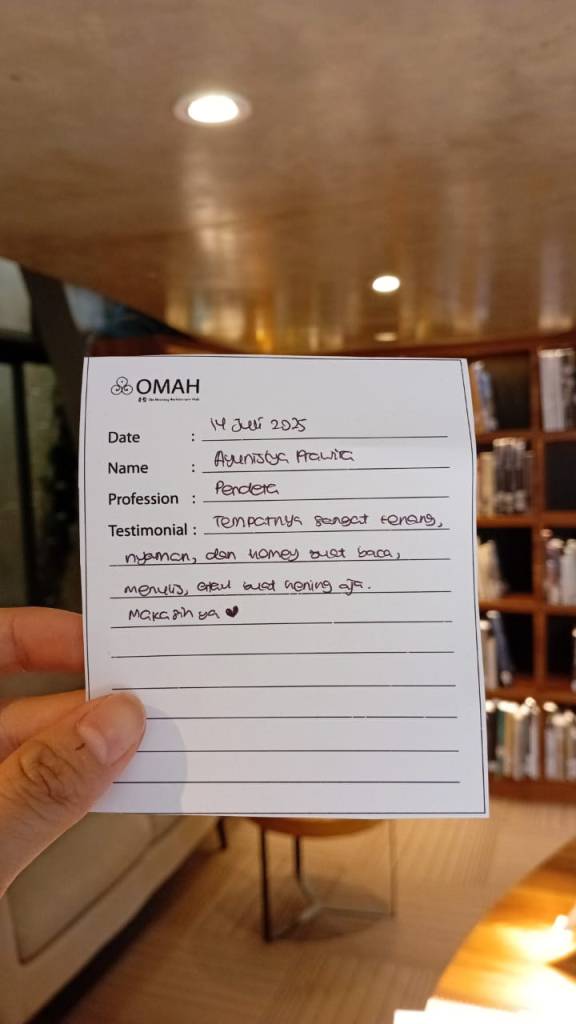 OMAH
Date : 14 Juli 2025
Name : Ayunistya Prawita
Profession : Pendeta
Testimonial : Tempatnya sangat tenang,
nyaman, dan homey buat baca,
menulis, atau buat hening aja.
Makasih ya ♥